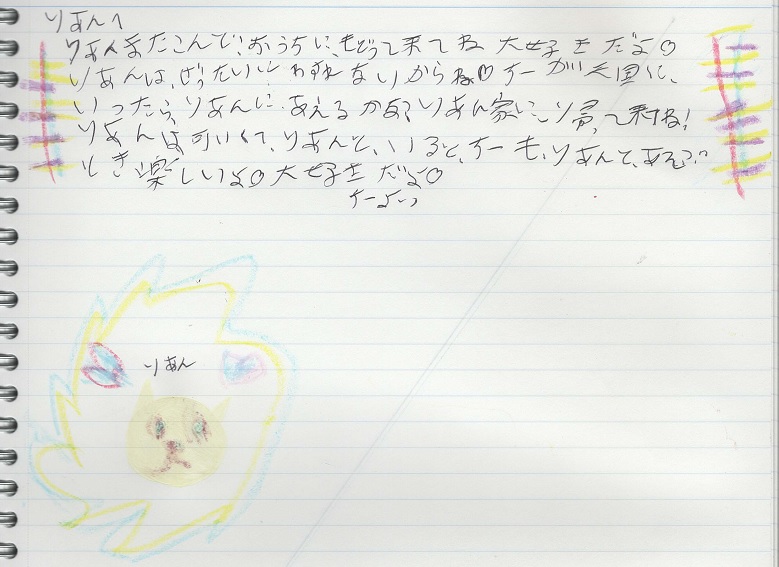 りあんへ
りあんまたこんで、おうちに、もどって来てね 大好きだよ♡
りあんは、ぜったいに わすれないからね♡ すーが天国に、
いったら、りあんに、あえるかな?りあん家に帰って来てね!
りあんは可いくて、りあんと、いると、すーも、りあんと、あそぶ
とき楽しいよ♡大好きだよ♡
すーより
りあん